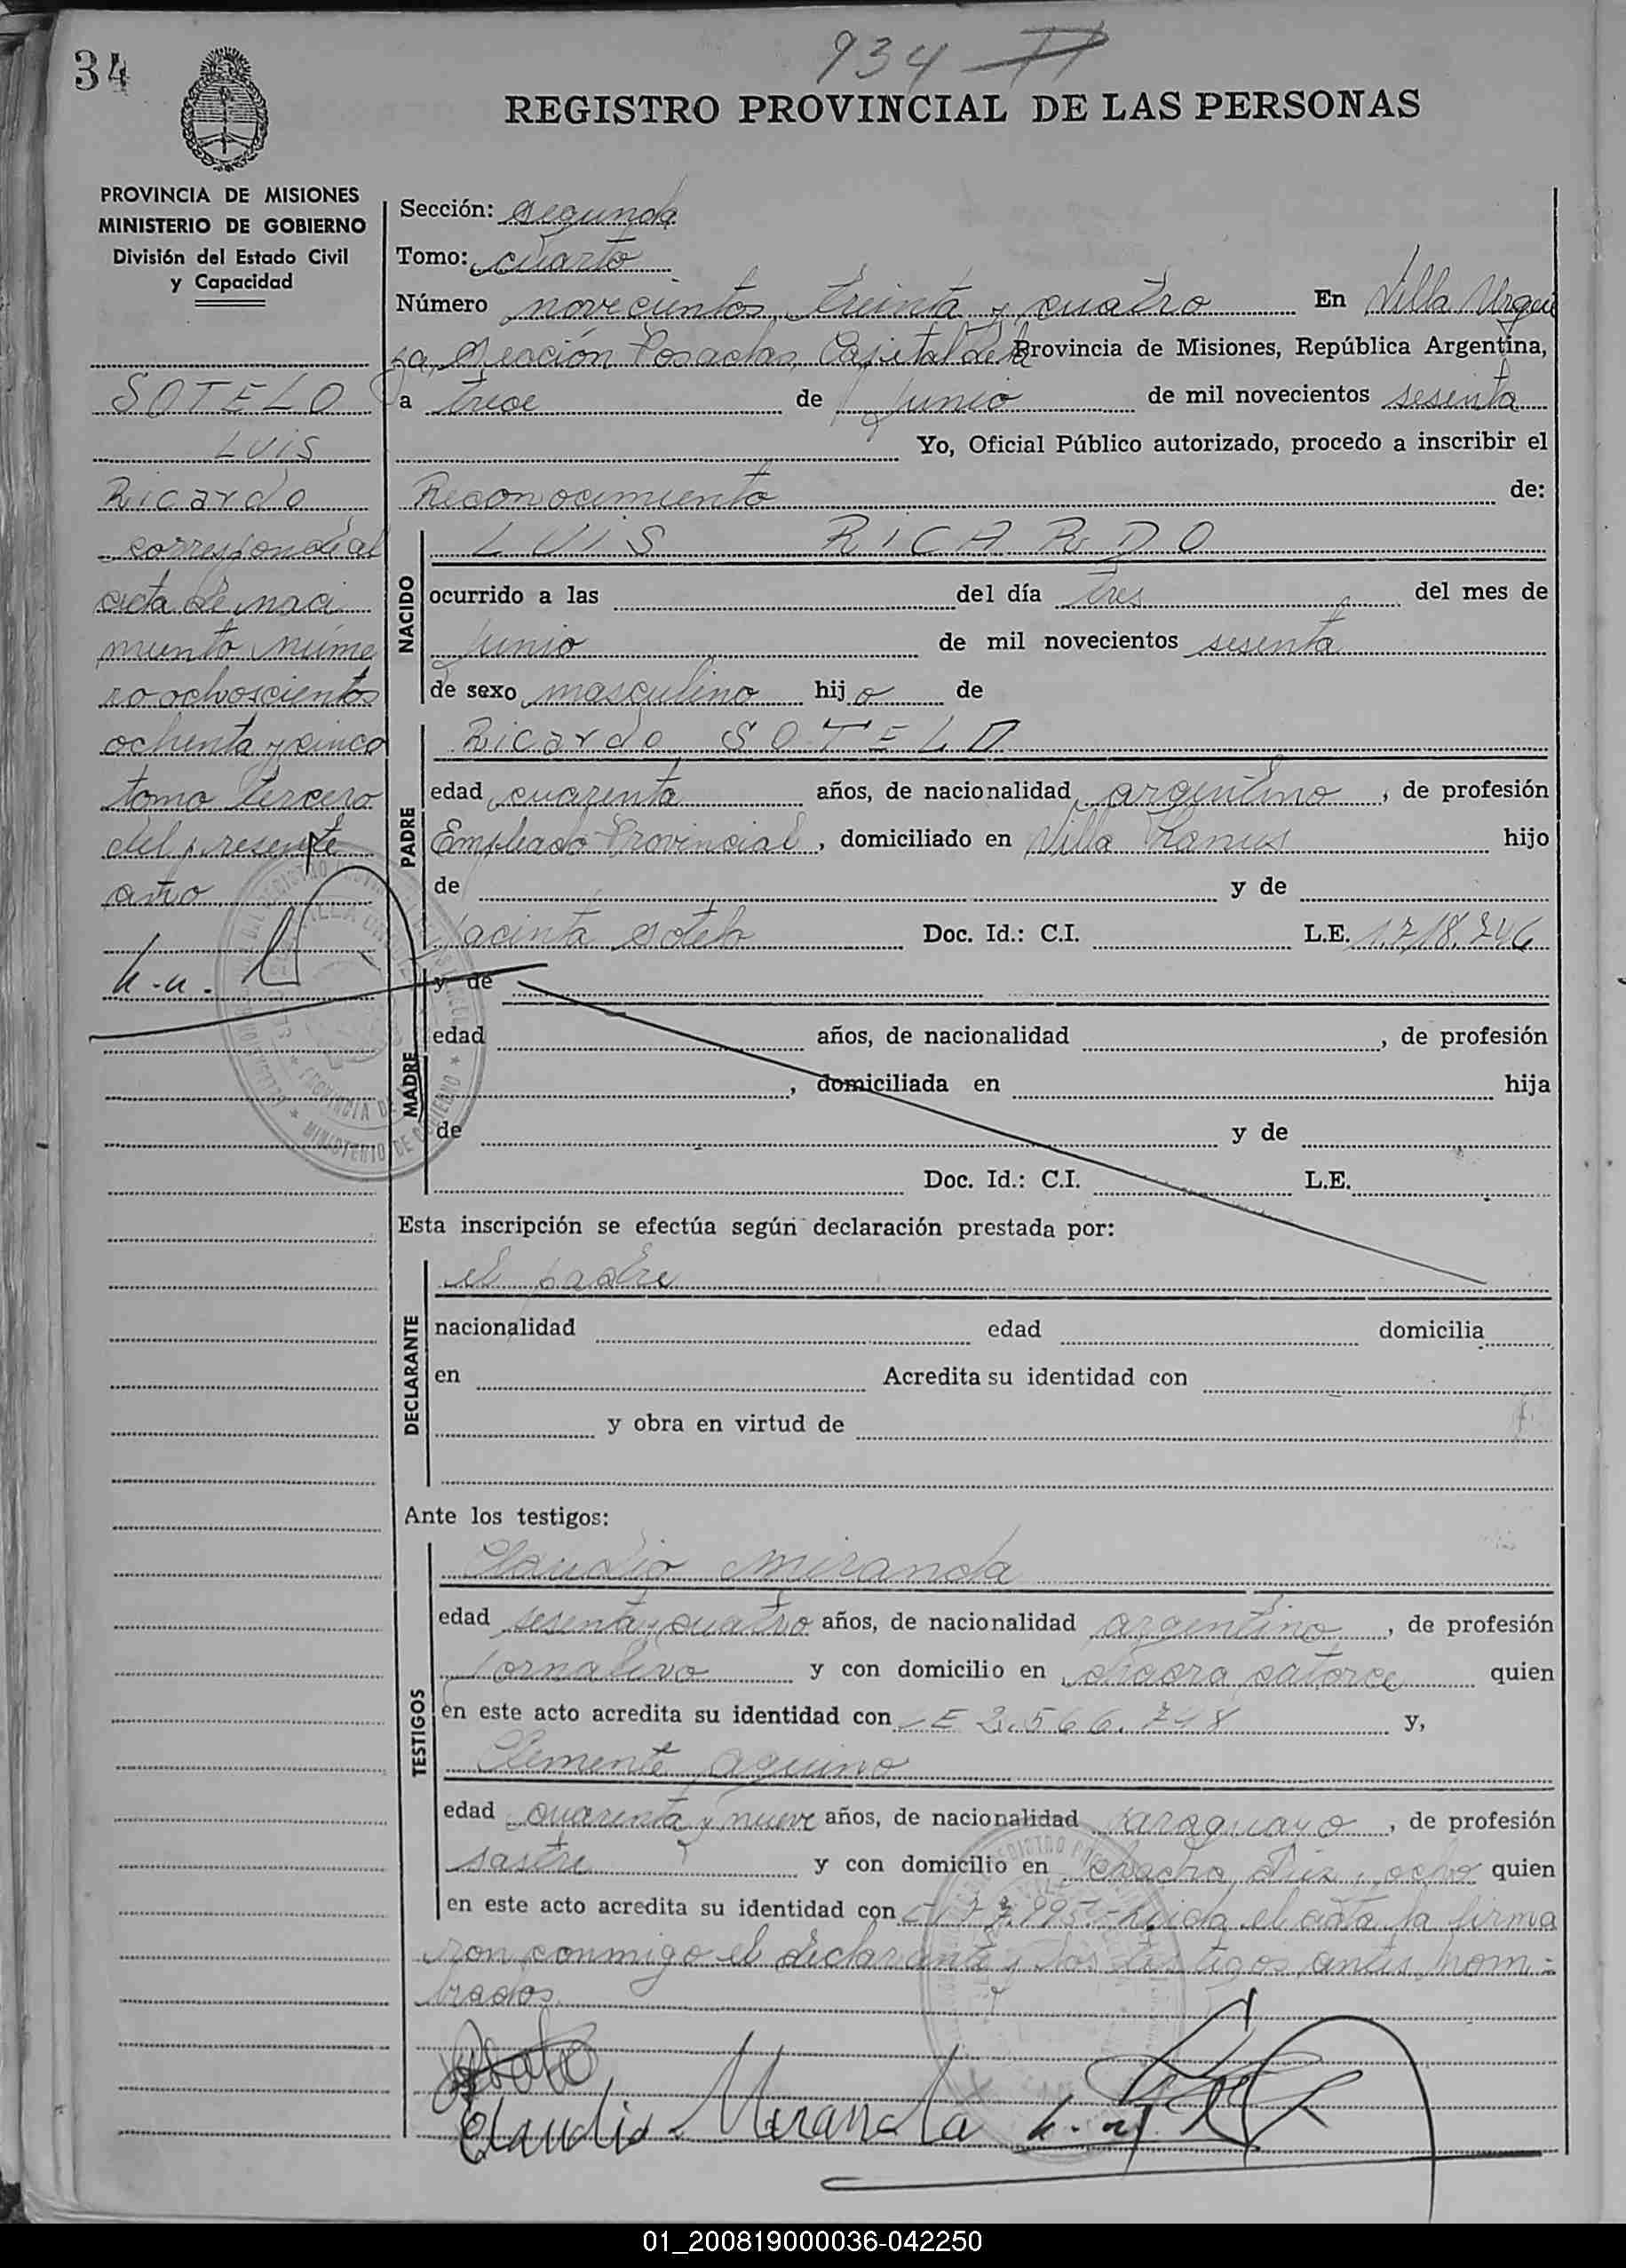 34
934
REGISTRO PROVINCIAL DE LAS PERSONAS
PROVINCIA DE MISIONES
MINISTERIO DE GOBIERNO
División del Estado Civil
y Capacidad
SOTELO
LUIS
Ricardo
corresponde al
acta de naci
miento núme
ro ochoscientos
ochenta y cinco
tomo tercero
del presente
año
Sección: segunda
Tomo: cuarto
Número novecientos treinta y cuatro En Villa Urqui
za, Sección Posadas, Capital de la Provincia de Misiones, República Argentina,
a trece de junio de mil novecientos sesenta
Yo, Oficial Público autorizado, procedo a inscribir el
Reconocimiento de:
NACIDO
LUIS RICARDO
ocurrido a las del día tres del mes de
junio de mil novecientos sesenta
de sexo masculino hijo de
PADRE
Ricardo SOTELO
edad cuarenta años, de nacionalidad argentino, de profesión
Empleado Provincial, domiciliado en Villa Lanus hijo
de y de
Jacinta Sotelo Doc. Id.: C.I. L.E.
MADRE
y de
edad años, de nacionalidad , de profesión
, domiciliada en hija
de y de
Doc. Id.: C.I. L.E.
Esta inscripción se efectúa según declaración prestada por:
DECLARANTE
el padre
nacionalidad edad domicilia
en Acredita su identidad con
y obra en virtud de
Ante los testigos:
TESTIGOS
Claudio Miranda
edad sesenta y cuatro años, de nacionalidad argentino, de profesión
Jornalero y con domicilio en chacra catorce quien
en este acto acredita su identidad con LE 2.566.748 y,
Clemente Aquino
edad cuarenta y nueve años, de nacionalidad paraguayo, de profesión
sastre y con domicilio en chacra diez y ocho quien
en este acto acredita su identidad con leida el acta la firma
ron conmigo el declarante y los testigos antes nom-
brados
Claudio Miranda
01_200819000036-042250